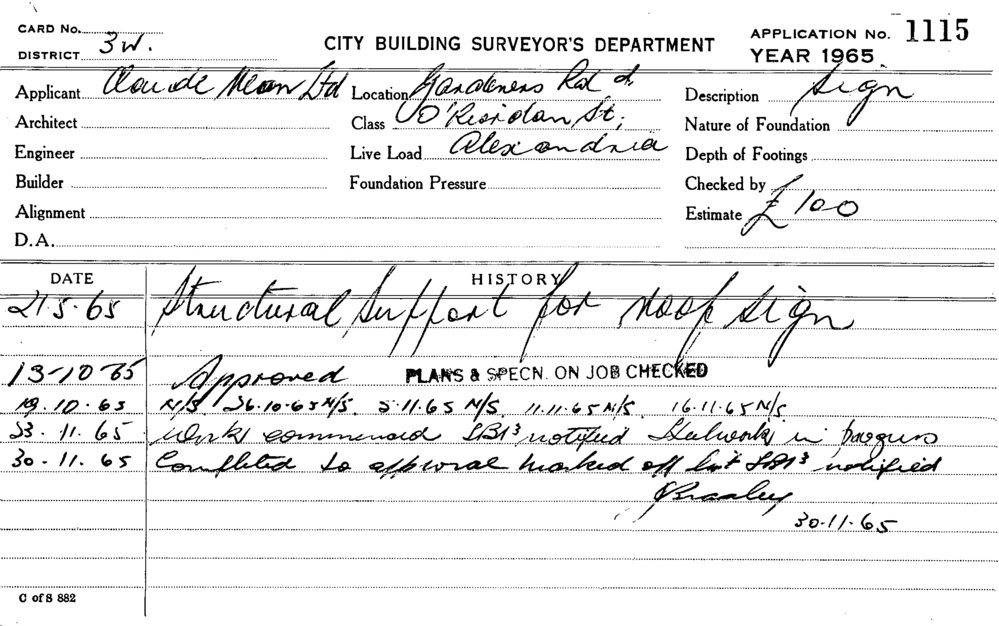 CARD No.
DISTRICT 3W.
CITY BUILDING SURVEYOR'S DEPARTMENT
APPLICATION No. 1115
YEAR 1965
Applicant Claude Neon Ltd Location Gardeners Rd &
Description Sign
Architect Class O'Riordan St,
Nature of Foundation
Engineer Live Load Alexandria
Depth of Footings
Builder Foundation Pressure
Checked by
Alignment Estimate £100
D.A.
DATE HISTORY
21.5.65 Structural Support for roof sign
13-10-65 Approved PLANS & SPECN. ON JOB CHECKED
19.10.65 N/S 26.10.65 N/S. 5.11.65 N/S. 11.11.65 N/S. 16.11.65 N/S
23.11.65 Work commenced notified Steelwork in progress
30.11.65 Completed to approval marked off notified
30.11.65
C of S 882